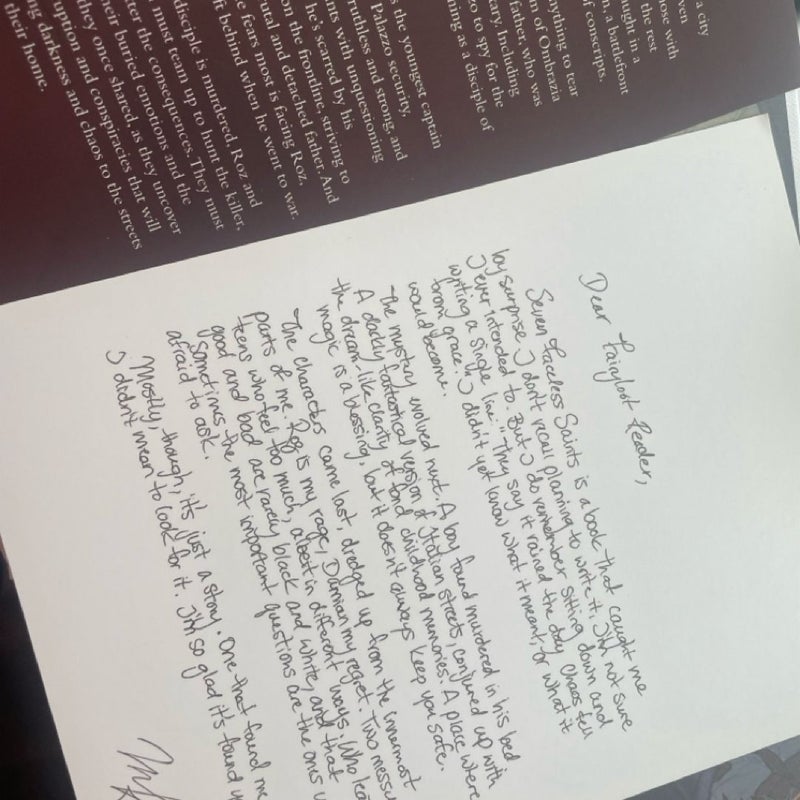 a city
even
hose with
the rest
ught in a
n a battlefront
of conscripts.
nything to tear
n of Ombrazia
father, who was
tary. Including
zo to spy for the
ing as a disciple of
s the youngest captain
Palazzo security.
uthless and strong, and
nts with unquestioning
he's scarred by his
on the frontline, striving to
utal and detached father. And
e fears most is facing Roz,
ft behind when he went to war.
disciple is murdered, Roz and
must team up to hunt the killer,
ter the consequences. They must
heir buried emotions and the
they once shared, as they uncover
uption and conspiracies that will
ng darkness and chaos to the streets
their home.
Dear Fairyloot Reader,
Seven Faceless Saints is a book that caught me
by surprise. I don't recall planning to write it. I'm not sure
I ever intended to. But I do remember sitting down and
writing a single line: They say it rained the day Chaos fell
from grace. I didn't yet know what it meant, or what it
would become.
The mystery evolved next. A boy found murdered in his bed
A darkly fantastical version of Italian streets, conjured up with
the dream-like clarity of fond childhood memories. A place where
magic is a blessing, but it doesn't always keep you safe.
The characters came last, dredged up from the innermost
parts of me. Roz is my rage, Damian my regret. Two messy
teens who feel too much, albeit in different ways. Who lea
good and bad are rarely black and white, and that
sometimes the most important questions are the ones
afraid to ask.
Mostly, though, it's just a story. One that found me
I didn't mean to look for it. I'm so glad it's found